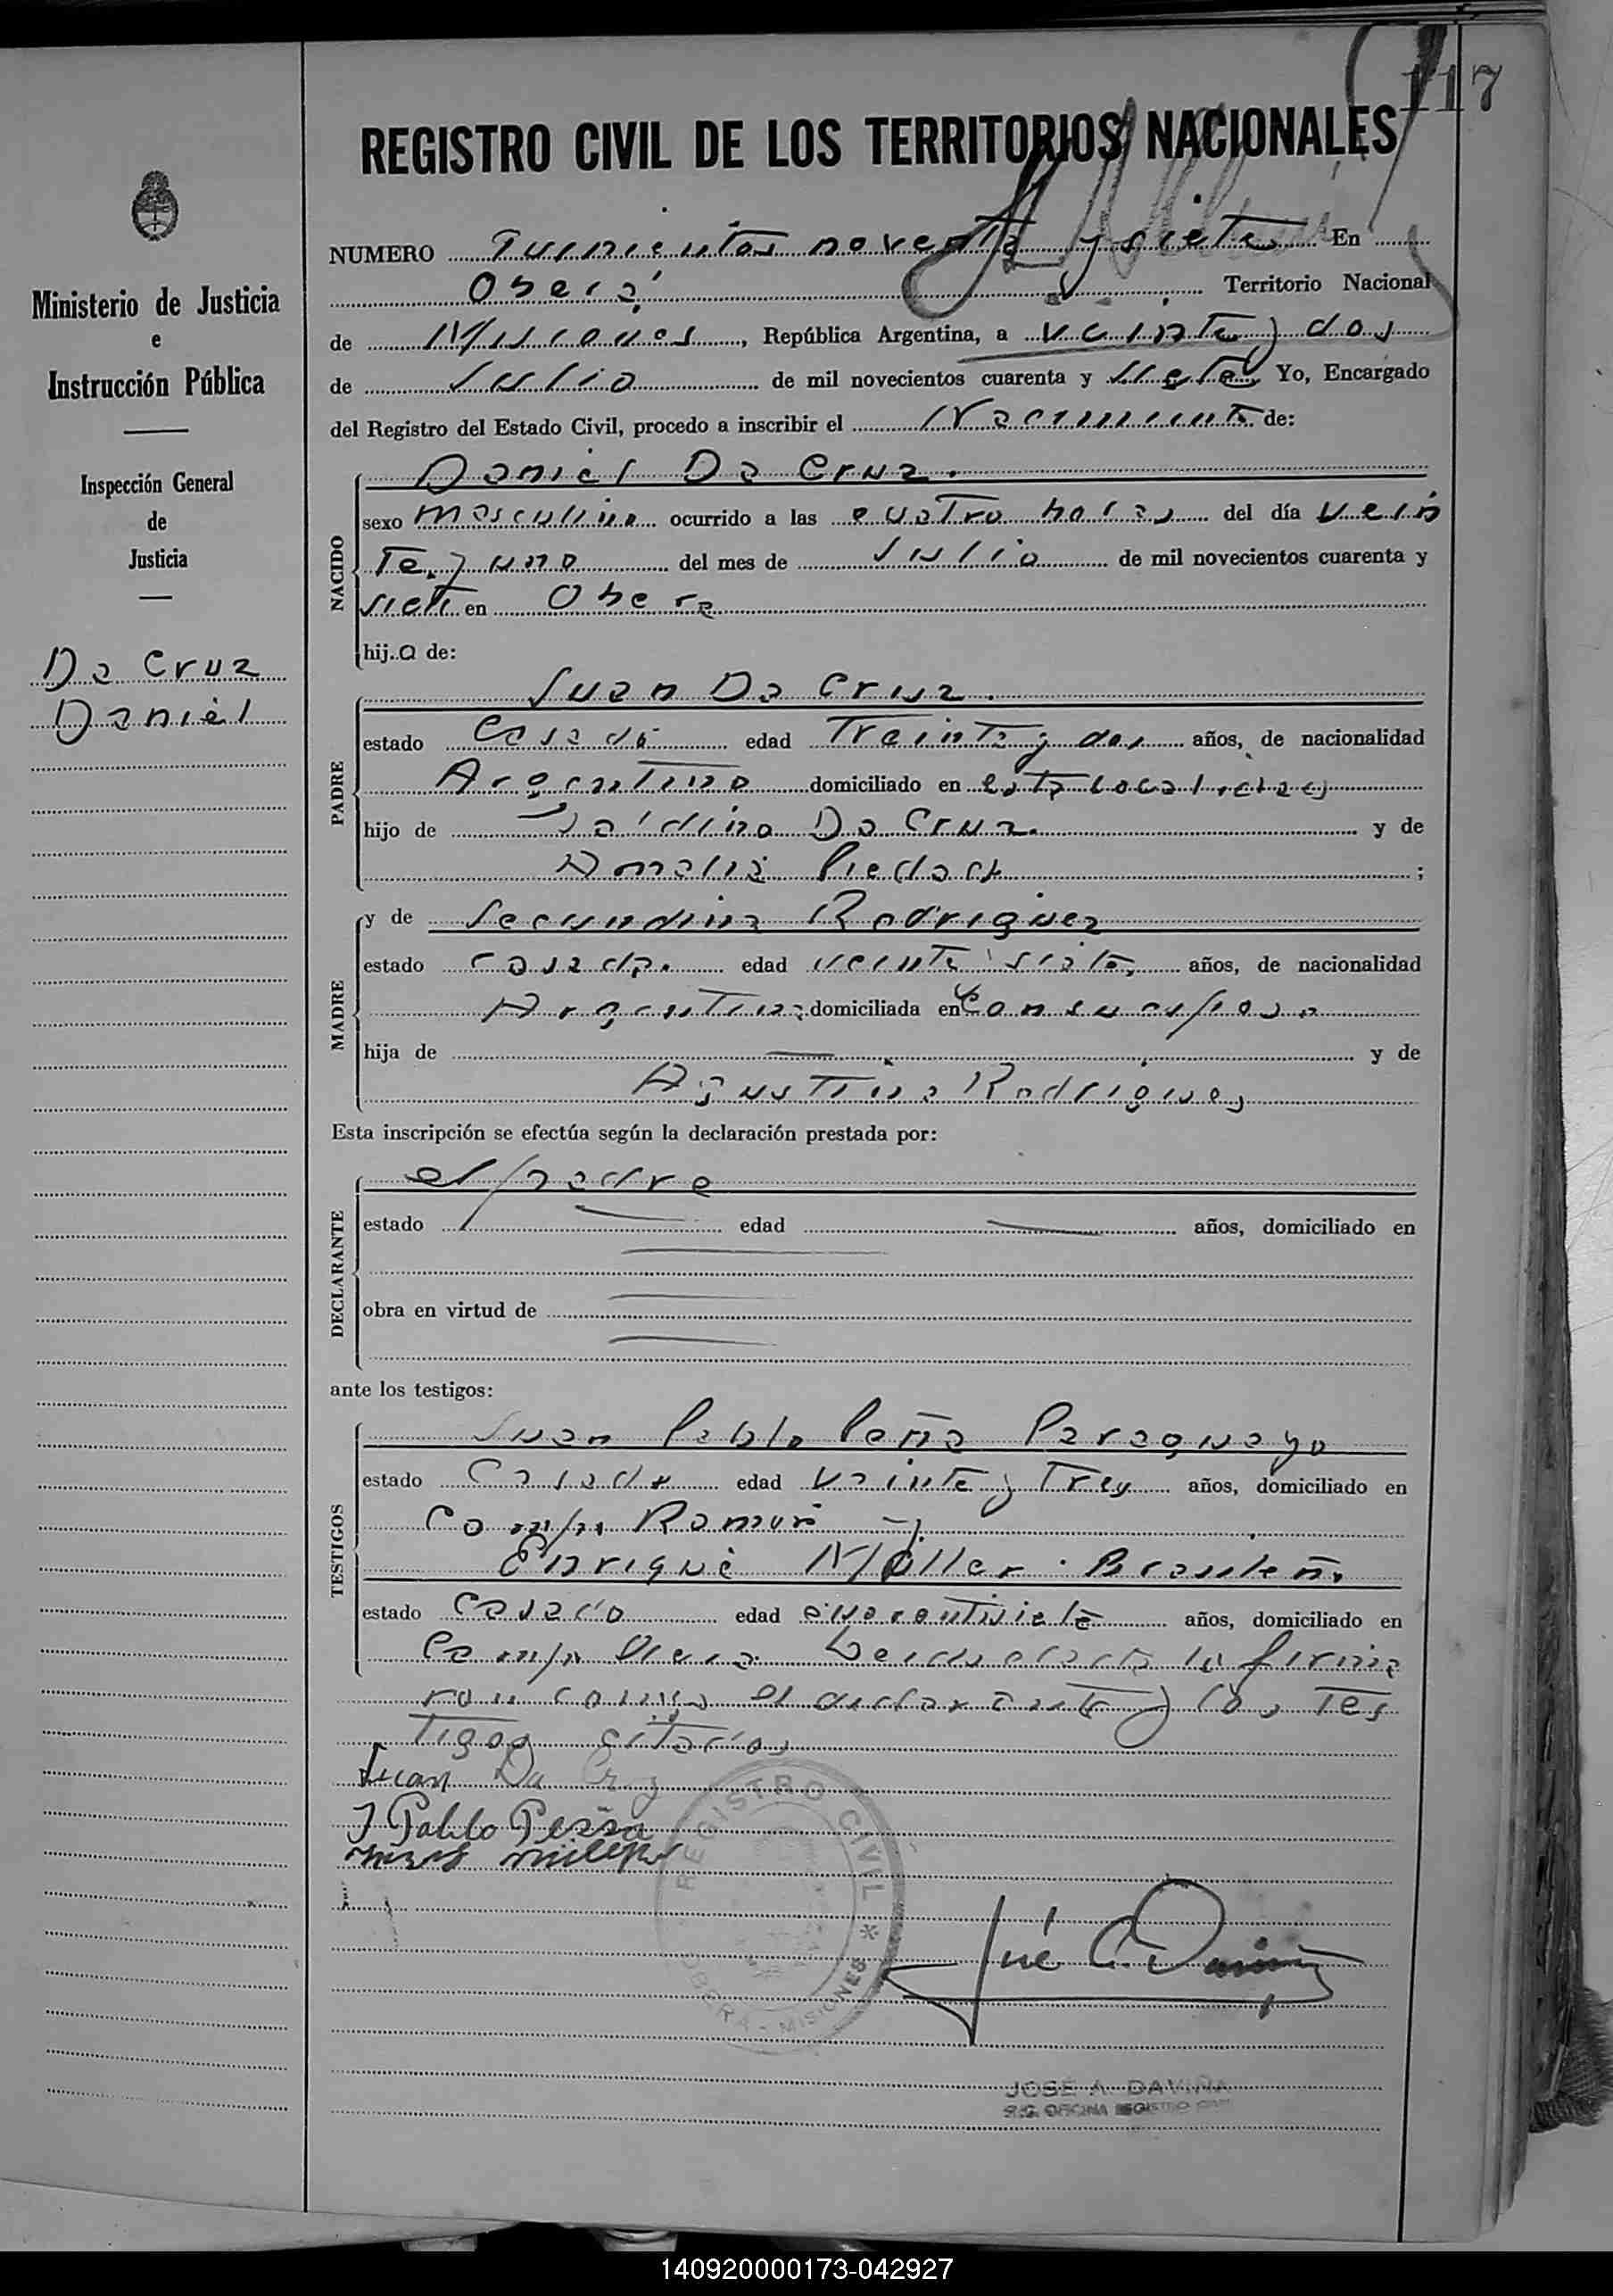 117
REGISTRO CIVIL DE LOS TERRITORIOS NACIONALES
Ministerio de Justicia
e
Instrucción Pública
Inspección General
de
Justicia
Da Cruz
Daniel
NUMERO Quinientos noventa y siete En
Oberá Territorio Nacional
de Misiones, República Argentina, a veinte y dos
de Julio de mil novecientos cuarenta y siete Yo, Encargado
del Registro del Estado Civil, procedo a inscribir el Nacimiento de:
NACIDO
Daniel Da Cruz.
sexo masculino ocurrido a las cuatro horas del día vein
te y uno del mes de Julio de mil novecientos cuarenta y
siete en Obera
hij o de:
PADRE
Juan Da Cruz.
estado Casado edad Treinta y dos años, de nacionalidad
Argentino domiciliado en esta localidad
hijo de Da Cruz. y de
Amalia Piedad ;
MADRE
y de Secundina Rodriguez
estado casada. edad veinte siete, años, de nacionalidad
Argentina domiciliada en Con su esposo
hija de — y de
Agustina Rodrigues
Esta inscripción se efectúa según la declaración prestada por:
DECLARANTE
el padre
estado edad años, domiciliado en
obra en virtud de
ante los testigos:
TESTIGOS
Juan Pablo Peña Paraguayo
estado Casado edad veinte y Tres años, domiciliado en
Campo Ramón y
Enrique Müller Brasileño
estado Casado edad cuarentisiete años, domiciliado en
Campo Viera. Leida el acta la firma
ron conmigo el declarante y los Tes
Tigos citados
Juan Da Cruz
J Pablo Pessoa
REGISTRO CIVIL * OBERA - MISIONES
JOSÉ A. DAVIÑA
OFICINA REGISTRO CIVIL
140920000173-042927